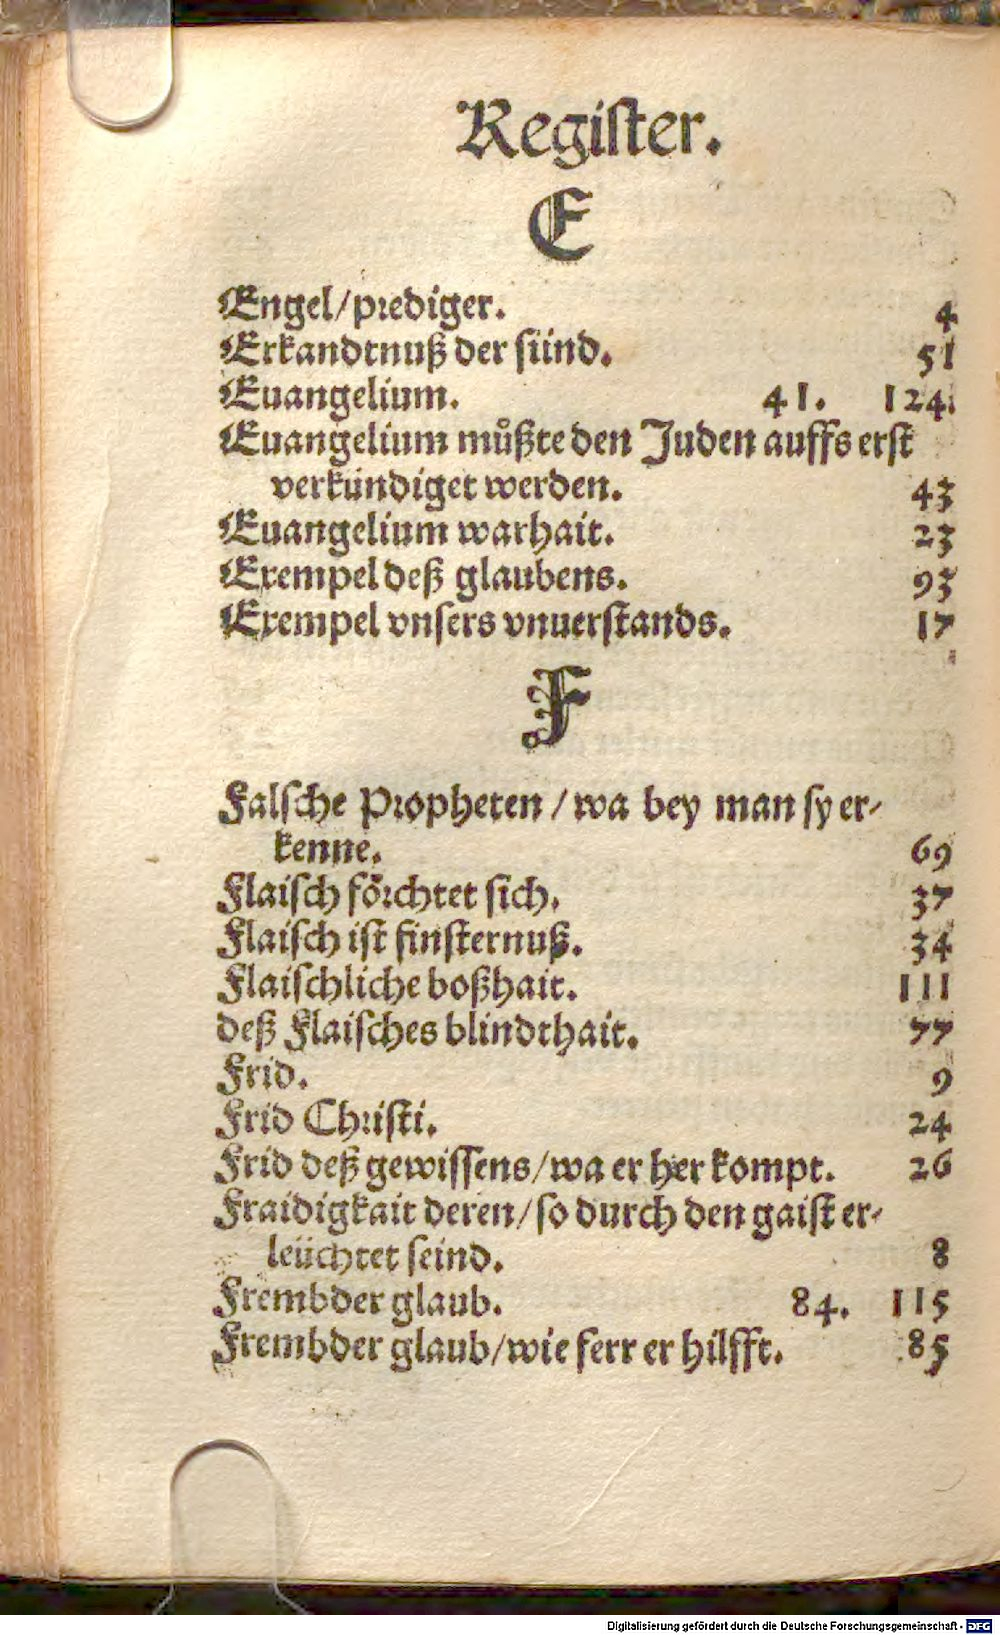 Regiſter.
E
Engel/prediger. 4
Erkandtnuß der ſünd. 51
Euangelium. 41. 124.
Euangelium můßte den Juden auffs erſt
verkündiget werden. 43
Euangelium warhait. 23
Exempel deß glaubens. 93
Exempel vnſers vnuerſtands. 17
F
Falſche Propheten / wa bey man ſy er⸗
kenne. 69
Flaiſch förchtet ſich. 37
Flaiſch iſt finſternuß. 34
Flaiſchliche boßhait. 111
deß Flaiſches blindthait. 77
Frid. 9
Frid Chriſti. 24
Frid deß gewiſſens/wa er her kompt. 26
Fraidigkait deren/ſo durch den gaiſt er⸗
leüchtet ſeind. 8
Frembder glaub. 84. 115
Frembder glaub/wie ferr er hilfft. 85
Digitalisierung gefördert durch die Deutsche Forschungsgemeinschaft - DFG